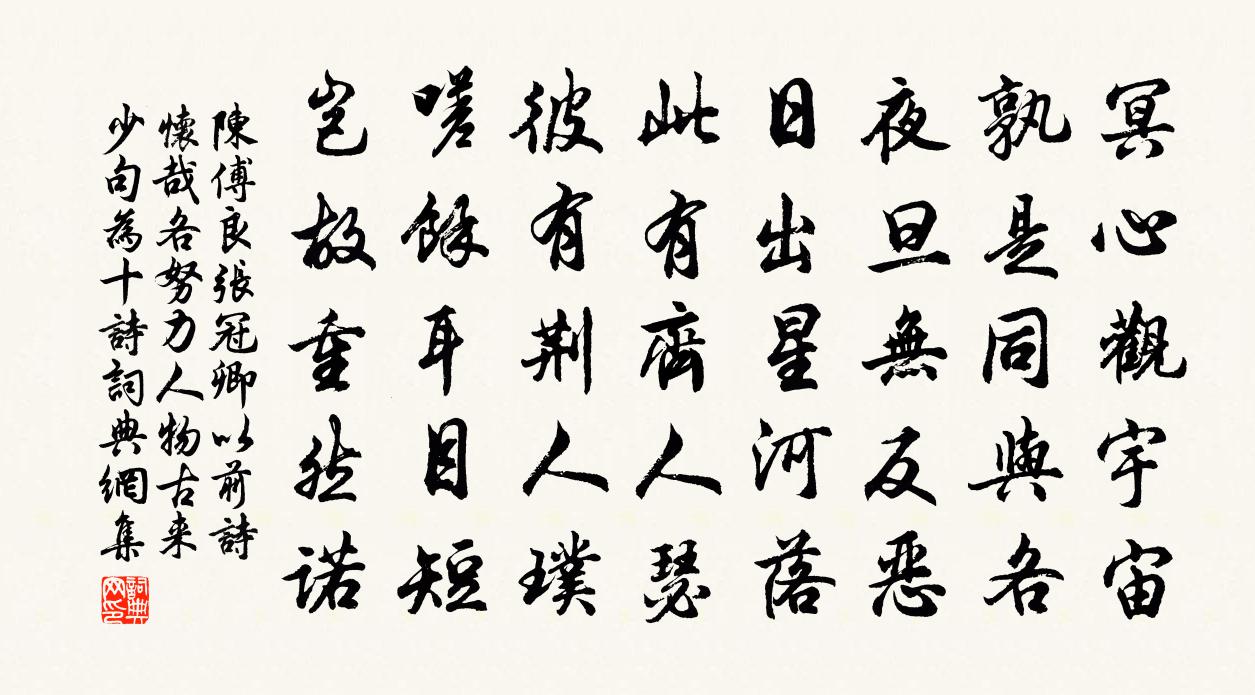 冥心觀宇宙
孰是同與各
夜旦無反惡
日出星河落
此有齊人瑟
彼有荆人璞
嗟餘耳目短
豈故重然諾
陳傅良張冠卿以前詩
懷哉各努力人物古来
少句為十詩詞典網集